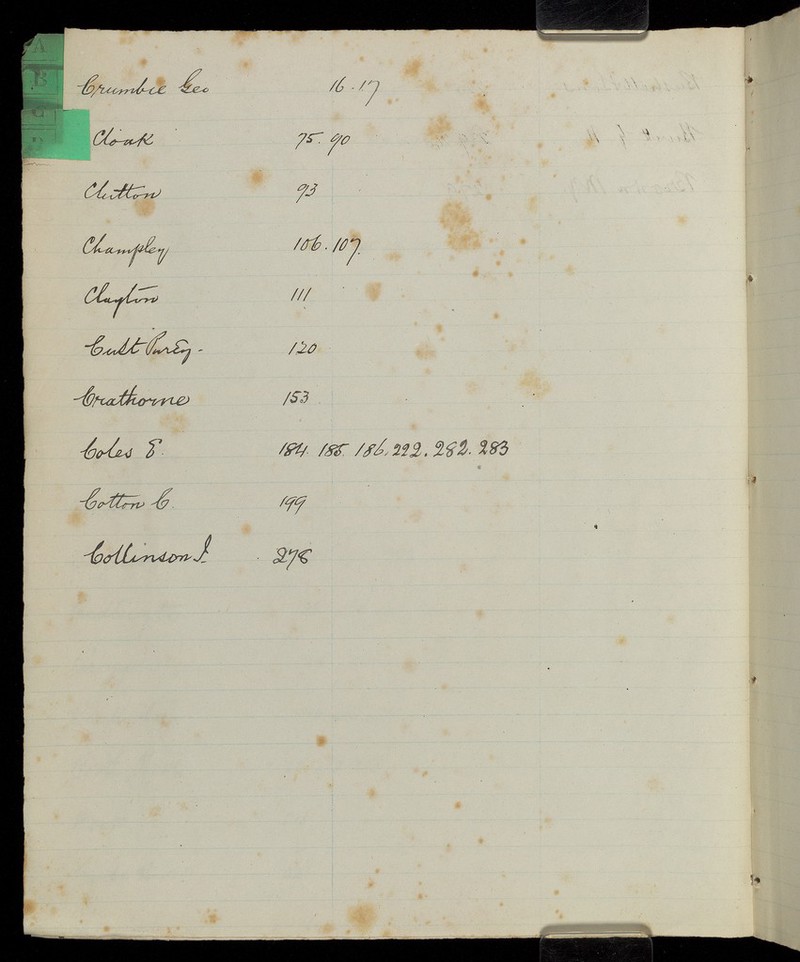 A
B
C
D
Crumbie Geo 16 . 17
Cloak 75 . 90
Clutton 93
Champley 106 . 107.
Clayton 111
Cust 120
Crathorne 153
Coles E. 184. 185. 186. 222. 282. 283
Cotton C. 199
Collinson J. 278